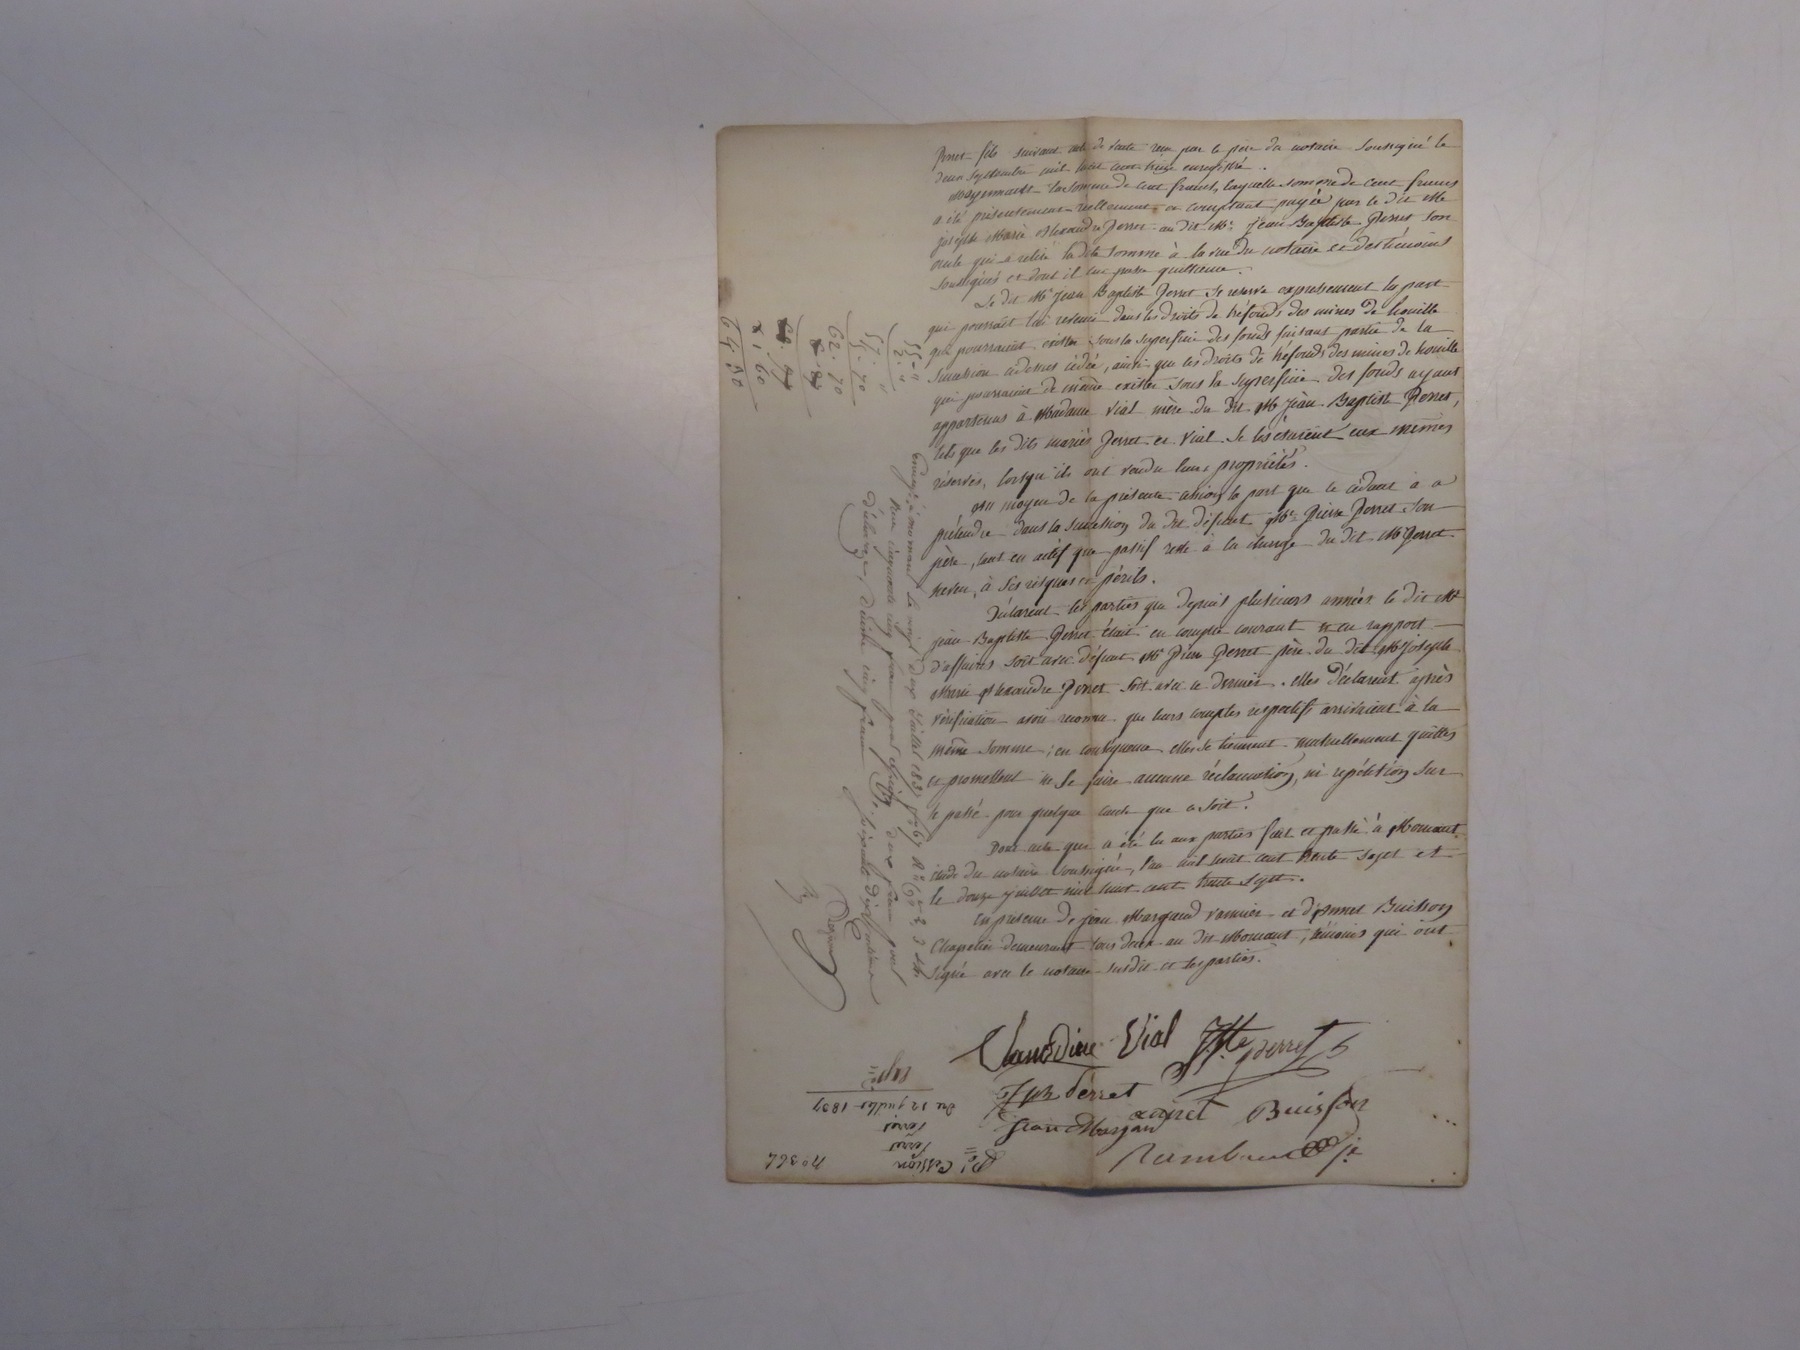 Perret fils suivant acte de vente reçu par le père du notaire soussigné le
deux Septembre mil huit cent treize enregistré.
Moyennant la somme de cent francs, laquelle somme de cent francs
a été présentement réellement et comptant payée par le dit Mr
joseph Marie Alexandre Perret au dit Mr jean Baptiste Perret son
oncle qui a retiré la dite somme à la vue du notaire et des témoins
soussignés et dont il lui passe quittance.
Le dit Mr jean Baptiste Perret se reserve expressement la part
qui pourrait lui revenir dans les droits de tréfonds des mines de houille
qui pourraient exister sous la superficie des fonds faisant partie de la
succession cidessus cédée, ainsi que les droits de tréfonds des mines de houille
qui pourraient de même exister sous la superficie des fonds ayant
appartenus à Madame Vial mère du dit Mr jean Baptiste Perret,
tels que les dits mariés Perret et Vial se les étaient eux mêmes
réservés, lorsqu'ils ont vendu leurs propriétés.
Au moyen de la présente cession la part que le cédant a a
prétendre dans la succession du dit défunt Mr Pierre Perret son
père, tant en actif que passif reste à la charge du dit Mr Perret
neveu, à ses risques et périls.
Déclarent les parties que depuis plusieurs années le dit Mr
jean Baptiste Perret était en compte courant et en rapport
d'affaires soit avec défunt Mr Pierre Perret père du dit Mr joseph
Marie Alexandre Perret soit avec ce dernier. elles déclarent après
vérification avoir reconnu que leurs comptes respectifs arrivaient à la
même somme; en conséquence elles se tiennent mutuellement quittes
et promettent ne se faire aucune réclamation, ni repétition sur
le passé pour quelque cause que ce soit.
Dont acte qui a été lu aux parties fait et passé à Mornant
étude du notaire soussigné, l'an mil huit cent trente sept et
le douze juillet mil huit cent trente sept.
En présence de jean Margand vannier et d'Annet Buisson
Chapelier demeurant tous deux au dit Mornant, témoins qui ont
signé avec le notaire susdit et les parties.
Claudine Vial Jte perret
Jph Perret
annet Buisson
jean Margand
Rambaud
Enregé à Mornant le vingt deux Juillet 1837 fo 67
Reçu cinquante cinq francs pour deux francs pour
décharge, décime cinq francs soixante dix centimes
55 "
2 "
57 "
5. 70
62. 70
1. 60
64. 30
No 364
Cession
Perret
à
Perret
du 12 juillet 1837
Expée